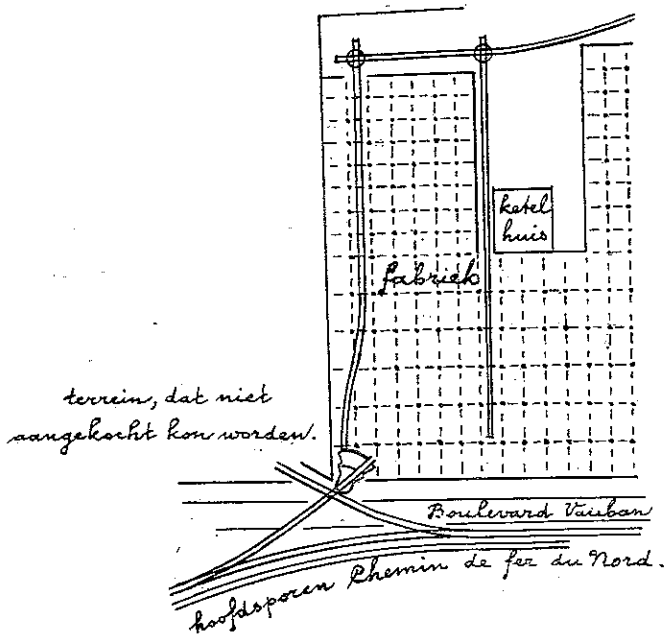 ketel
huis
fabriek
terrein, dat niet
aangekocht kon worden.
Boulevard Vauban
hoofdsporen Chemin de fer du Nord.